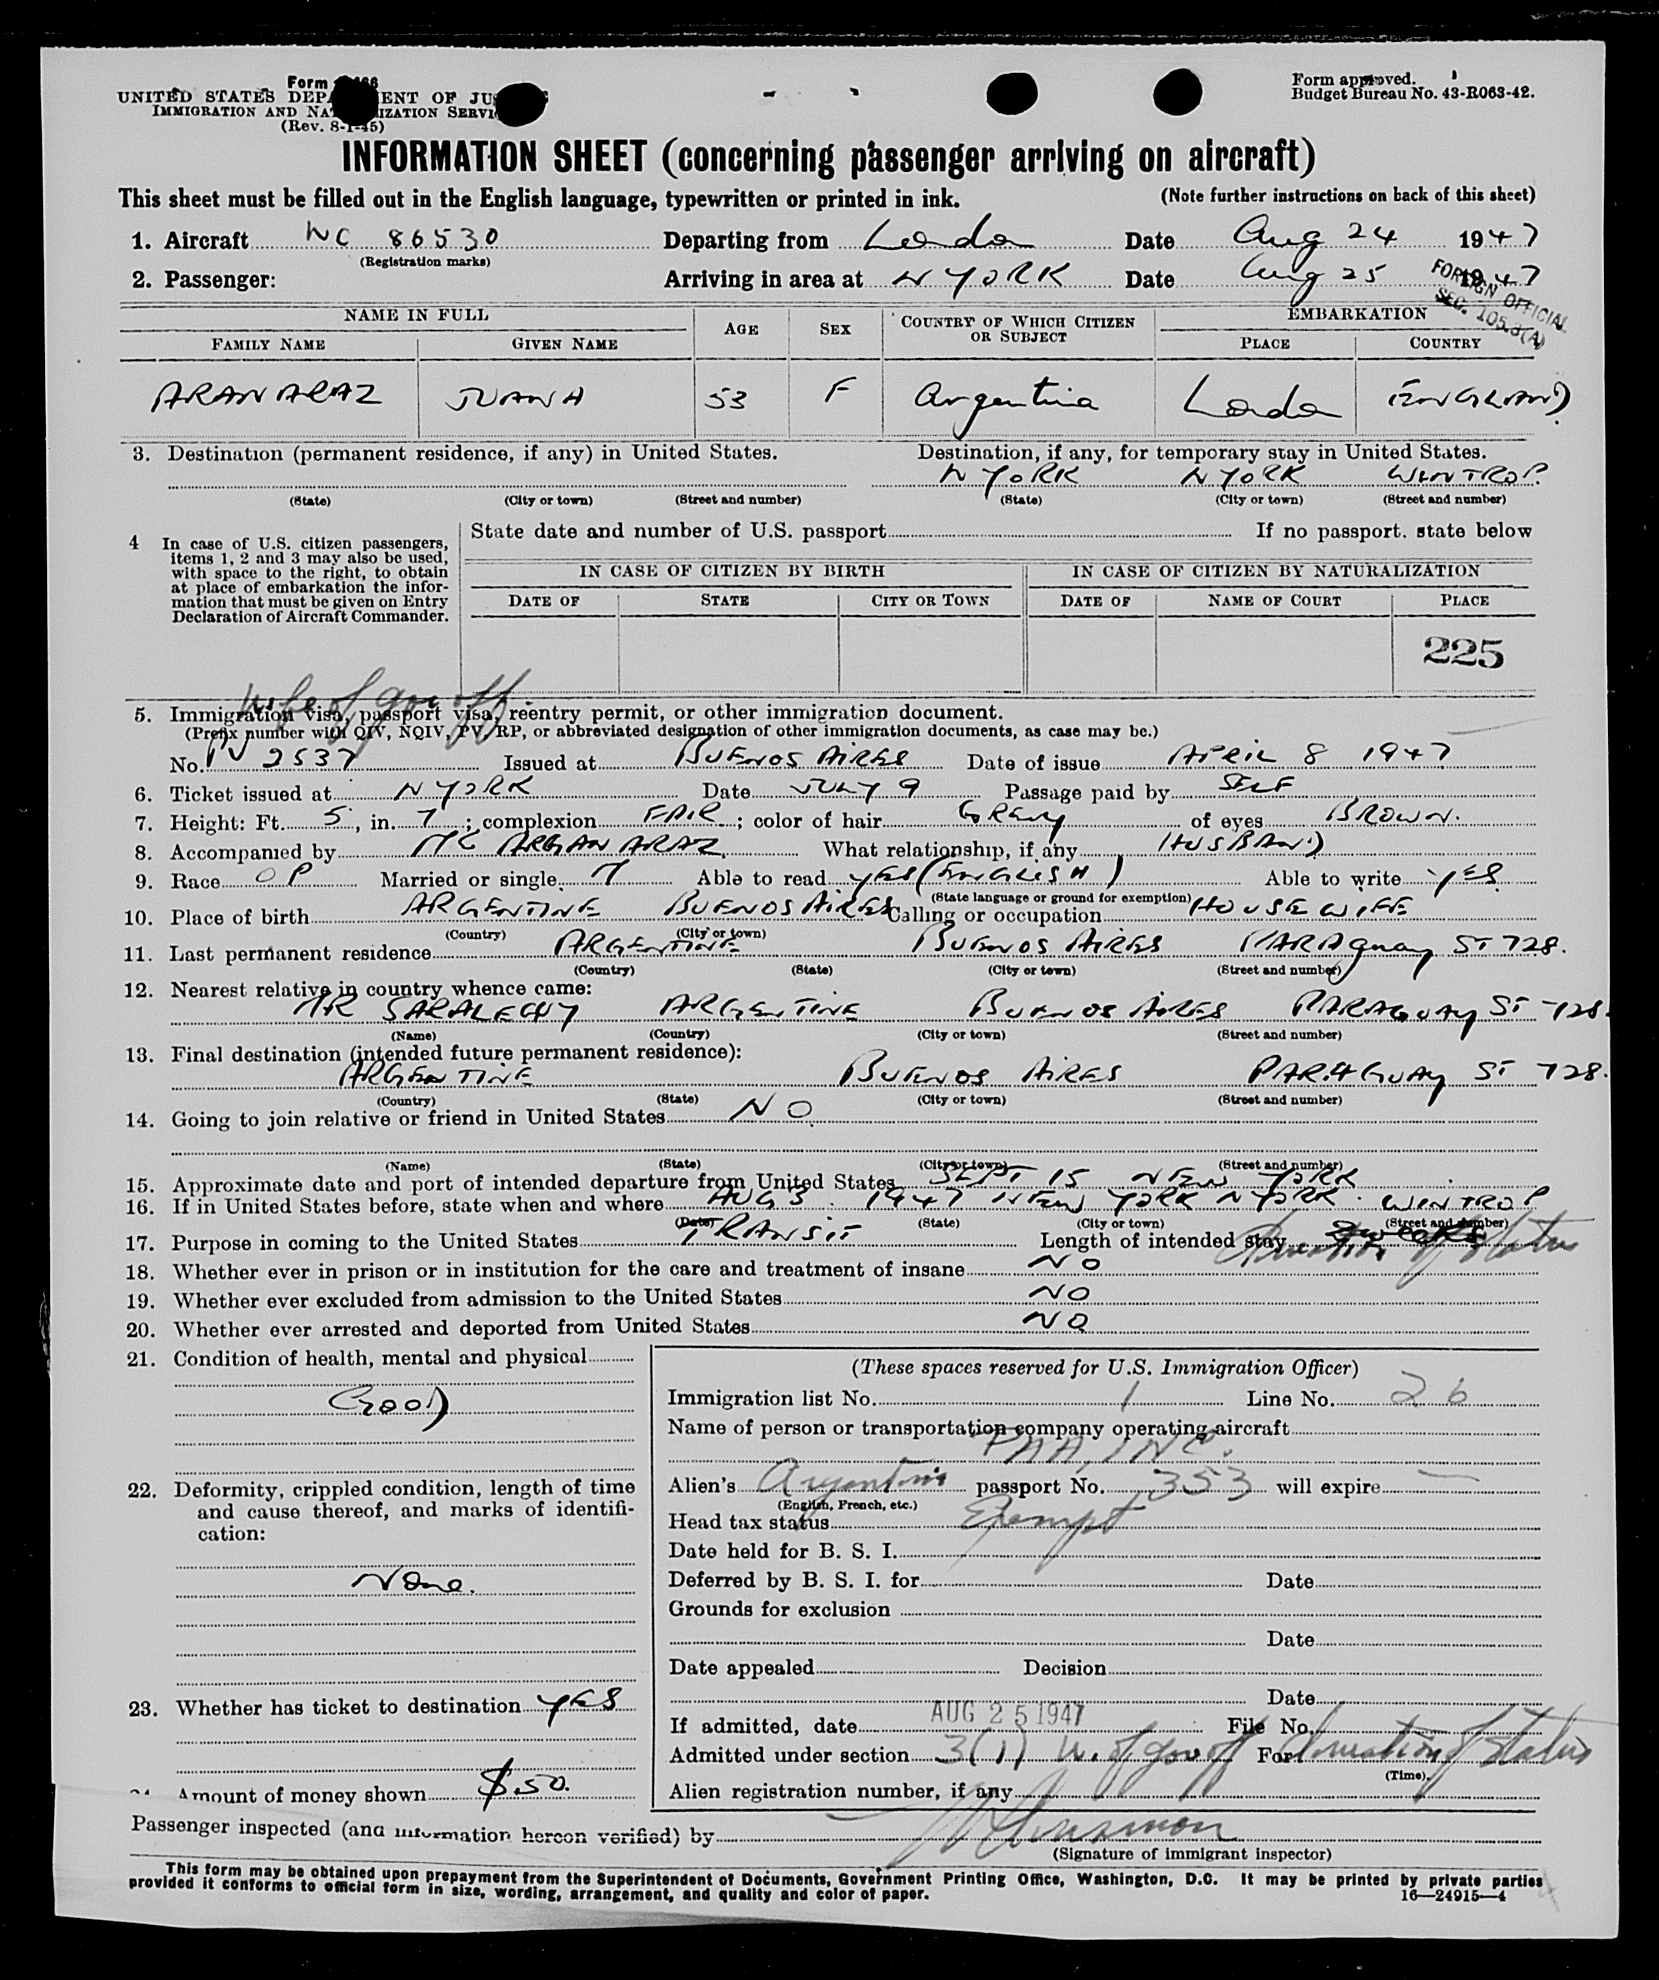 Form
UNITED STATES DEPARTMENT OF JUSTICE
IMMIGRATION AND NATURALIZATION SERVICE
(Rev. 8-1-45)
Form approved.
Budget Bureau No. 43-R063-42.
INFORMATION SHEET (concerning passenger arriving on aircraft)
This sheet must be filled out in the English language, typewritten or printed in ink. (Note further instructions on back of this sheet)
1. Aircraft NC 86530 Departing from London Date Aug 24 1947
(Registration marks)
2. Passenger: Arriving in area at N YORK Date Aug 25 1947
FOREIGN OFFICIAL
SEC. 105.3(A)
NAME IN FULL AGE SEX COUNTRY OF WHICH CITIZEN OR SUBJECT EMBARKATION
FAMILY NAME GIVEN NAME PLACE COUNTRY
ARANARAZ JUANA 53 F Argentina London ENGLAND
3. Destination (permanent residence, if any) in United States. Destination, if any, for temporary stay in United States.
N YORK N YORK WINTROP.
(State) (City or town) (Street and number) (State) (City or town) (Street and number)
4 In case of U.S. citizen passengers, items 1, 2 and 3 may also be used, with space to the right, to obtain at place of embarkation the information that must be given on Entry Declaration of Aircraft Commander.
State date and number of U.S. passport If no passport, state below
IN CASE OF CITIZEN BY BIRTH IN CASE OF CITIZEN BY NATURALIZATION
DATE OF STATE CITY OR TOWN DATE OF NAME OF COURT PLACE
225
wife of gov off
5. Immigration visa, passport visa, reentry permit, or other immigration document.
(Prefix number with QIV, NQIV, PV, RP, or abbreviated designation of other immigration documents, as case may be.)
No. PV 2537 Issued at BUENOS AIRES Date of issue APRIL 8 1947
6. Ticket issued at N YORK Date JULY 9 Passage paid by SELF
7. Height: Ft. 5, in. 7; complexion FAIR; color of hair GREY of eyes BROWN.
8. Accompanied by MR ARGANARAZ. What relationship, if any HUSBAND
9. Race Married or single M Able to read YES (ENGLISH) Able to write YES
(State language or ground for exemption)
10. Place of birth ARGENTINE BUENOS AIRES Calling or occupation HOUSEWIFE
(Country) (City or town)
11. Last permanent residence ARGENTINE BUENOS AIRES PARAGUAY ST 728.
(Country) (State) (City or town) (Street and number)
12. Nearest relative in country whence came:
MR SARALEGUY ARGENTINE BUENOS AIRES PARAGUAY ST 728.
(Name) (Country) (City or town) (Street and number)
13. Final destination (intended future permanent residence):
ARGENTINE BUENOS AIRES PARAGUAY ST 728.
(Country) (State) (City or town) (Street and number)
14. Going to join relative or friend in United States NO
(Name) (State) (City or town) (Street and number)
15. Approximate date and port of intended departure from United States SEPT 15 NEW YORK
16. If in United States before, state when and where AUG 3. 1947 NEW YORK N YORK. WINTROP
(Date) (State) (City or town) (Street and number)
17. Purpose in coming to the United States TRANSIT Length of intended stay Duration of Status
18. Whether ever in prison or in institution for the care and treatment of insane NO
19. Whether ever excluded from admission to the United States NO
20. Whether ever arrested and deported from United States NO
21. Condition of health, mental and physical
GOOD
22. Deformity, crippled condition, length of time and cause thereof, and marks of identification:
None.
23. Whether has ticket to destination YES
Amount of money shown $50.
(These spaces reserved for U.S. Immigration Officer)
Immigration list No. 1 Line No. 26
Name of person or transportation company operating aircraft
PAA, INC.
Alien's Argentine passport No. 353 will expire —
(English, French, etc.)
Head tax status Exempt
Date held for B. S. I.
Deferred by B. S. I. for Date
Grounds for exclusion
Date
Date appealed Decision
Date
If admitted, date AUG 25 1947 File No.
Admitted under section 3(1) W. of gov off For Duration of Status
(Time)
Alien registration number, if any
Passenger inspected (and information hereon verified) by
(Signature of immigrant inspector)
This form may be obtained upon prepayment from the Superintendent of Documents, Government Printing Office, Washington, D.C. It may be printed by private parties
provided it conforms to official form in size, wording, arrangement, and quality and color of paper. 16—24915—4